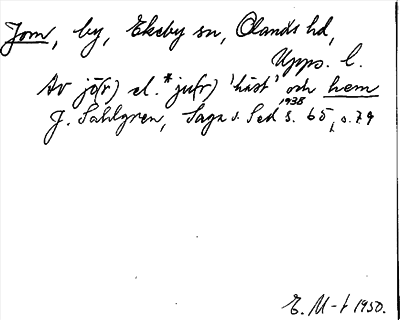 Jom, by, Ekeby sn, Olands hd,
Upps. l.
Av jó(r) el. *ju(r) 'häst' och hem
J. Sahlgren, Saga o. Sed 1938 s. 65, o. 79
E. M-t 1950.